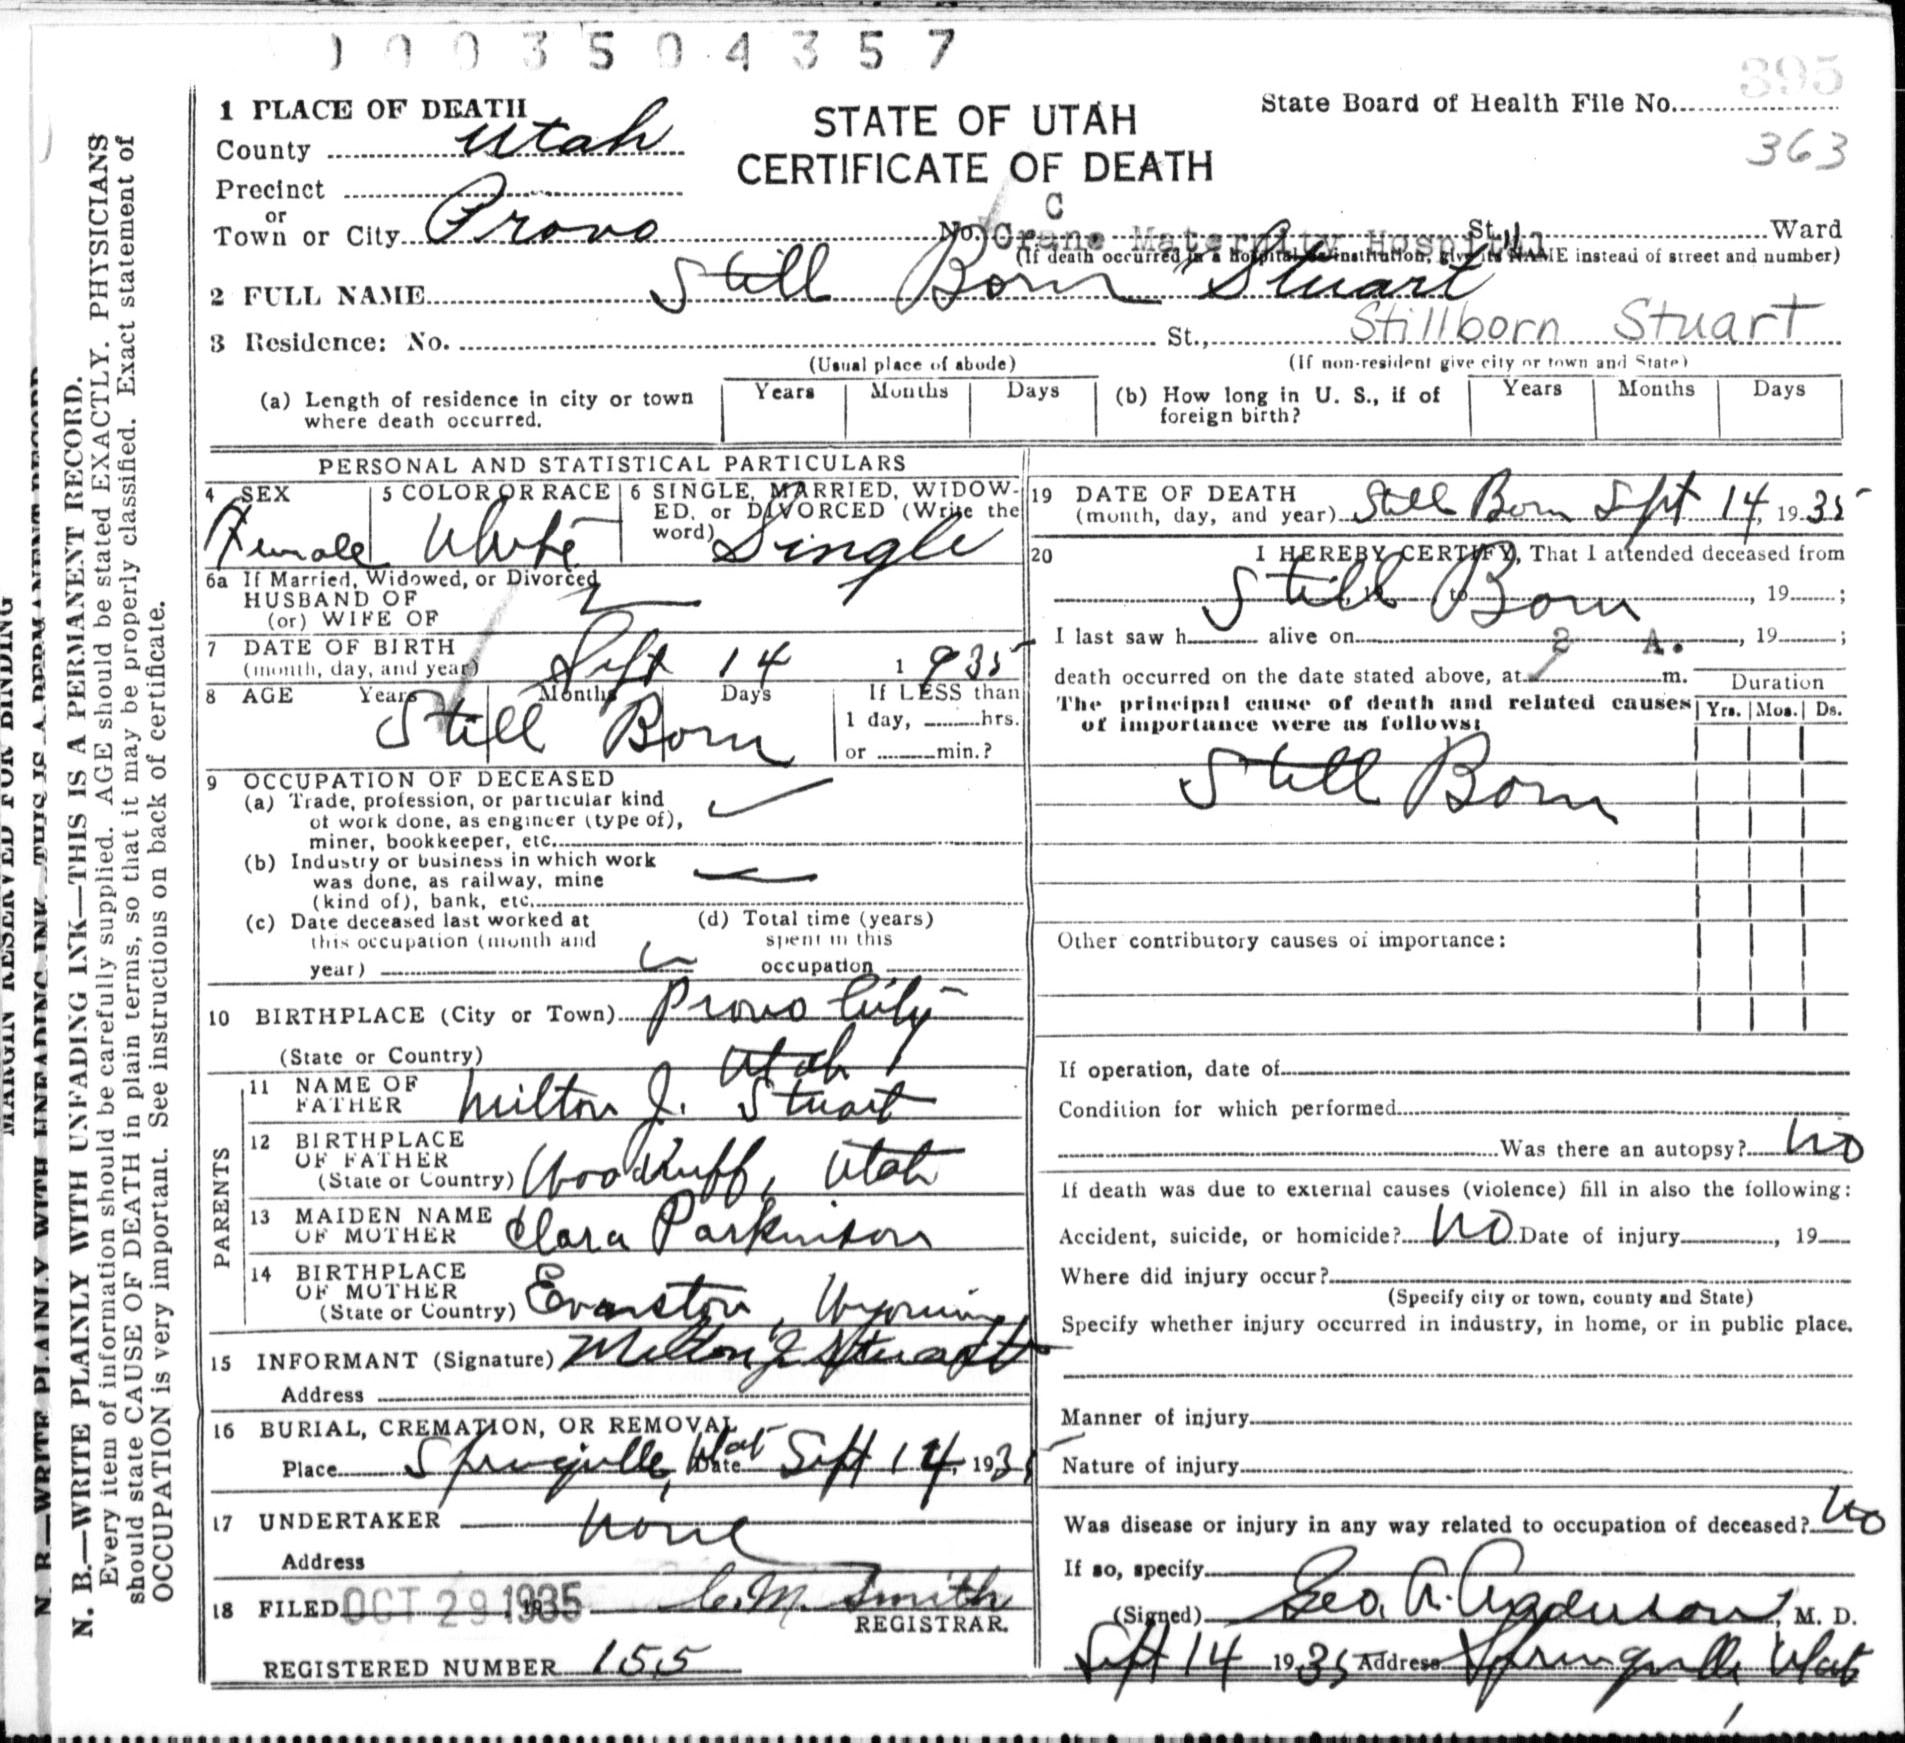 1003504357
395
1 PLACE OF DEATH
STATE OF UTAH
CERTIFICATE OF DEATH
State Board of Health File No.
363
County Utah
Precinct
or
Town or City Provo No. Crane Maternity Hospital St., Ward
C
(If death occurred in a hospital or institution, give its NAME instead of street and number)
2 FULL NAME Still Born "Stuart"
Stillborn Stuart
3 Residence: No. St.,
(Usual place of abode) (If non-resident give city or town and State)
(a) Length of residence in city or town where death occurred. Years Months Days
(b) How long in U. S., if of foreign birth? Years Months Days
PERSONAL AND STATISTICAL PARTICULARS
4 SEX Female
5 COLOR OR RACE White
6 SINGLE, MARRIED, WIDOW-
ED, or DIVORCED (Write the
word) Single
6a If Married, Widowed, or Divorced
HUSBAND OF
(or) WIFE OF
7 DATE OF BIRTH
(month, day, and year) Sept 14 1935
8 AGE Years Months Days If LESS than
1 day, hrs.
or min.?
Still Born
9 OCCUPATION OF DECEASED
(a) Trade, profession, or particular kind
of work done, as engineer (type of),
miner, bookkeeper, etc.
(b) Industry or business in which work
was done, as railway, mine
(kind of), bank, etc.
(c) Date deceased last worked at
this occupation (month and
year)
(d) Total time (years)
spent in this
occupation
10 BIRTHPLACE (City or Town) Provo City
(State or Country) Utah
PARENTS
11 NAME OF
FATHER Milton J. Stuart
12 BIRTHPLACE
OF FATHER
(State or Country) Woodruff, Utah
13 MAIDEN NAME
OF MOTHER Clara Parkinson
14 BIRTHPLACE
OF MOTHER
(State or Country) Evanston, Wyoming
15 INFORMANT (Signature) Milton J Stuart
Address
16 BURIAL, CREMATION, OR REMOVAL
Place Springville, Utah Date Sept 14, 1935
17 UNDERTAKER None
Address
18 FILED OCT 29 1935 C. M. Smith
REGISTRAR.
REGISTERED NUMBER 155
19 DATE OF DEATH
(month, day, and year) Still Born Sept 14, 1935
20 I HEREBY CERTIFY, That I attended deceased from
Still Born, 19 to , 19 ;
I last saw h alive on , 19 ;
death occurred on the date stated above, at 2 A. m.
The principal cause of death and related causes
of importance were as follows:
Duration
Yrs. Mos. Ds.
Still Born
Other contributory causes of importance:
If operation, date of
Condition for which performed
Was there an autopsy? No
If death was due to external causes (violence) fill in also the following:
Accident, suicide, or homicide? No Date of injury , 19
Where did injury occur?
(Specify city or town, county and State)
Specify whether injury occurred in industry, in home, or in public place.
Manner of injury
Nature of injury
Was disease or injury in any way related to occupation of deceased? No
If so, specify
(Signed) Geo. A. Anderson, M. D.
Sept 14 1935 Address Springville, Utah
MARGIN RESERVED FOR BINDING
N. B.—WRITE PLAINLY WITH UNFADING INK—THIS IS A PERMANENT RECORD
N. B.—WRITE PLAINLY WITH UNFADING INK—THIS IS A PERMANENT RECORD.
Every item of information should be carefully supplied. AGE should be stated EXACTLY. PHYSICIANS
should state CAUSE OF DEATH in plain terms, so that it may be properly classified. Exact statement of
OCCUPATION is very important. See instructions on back of certificate.